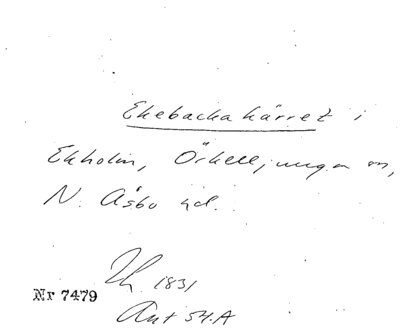 Ekebackakärret i
Ekholm, Örkelljunga sn,
N. Åsbo hd.
1831
Nr 7479
Ant 54.A